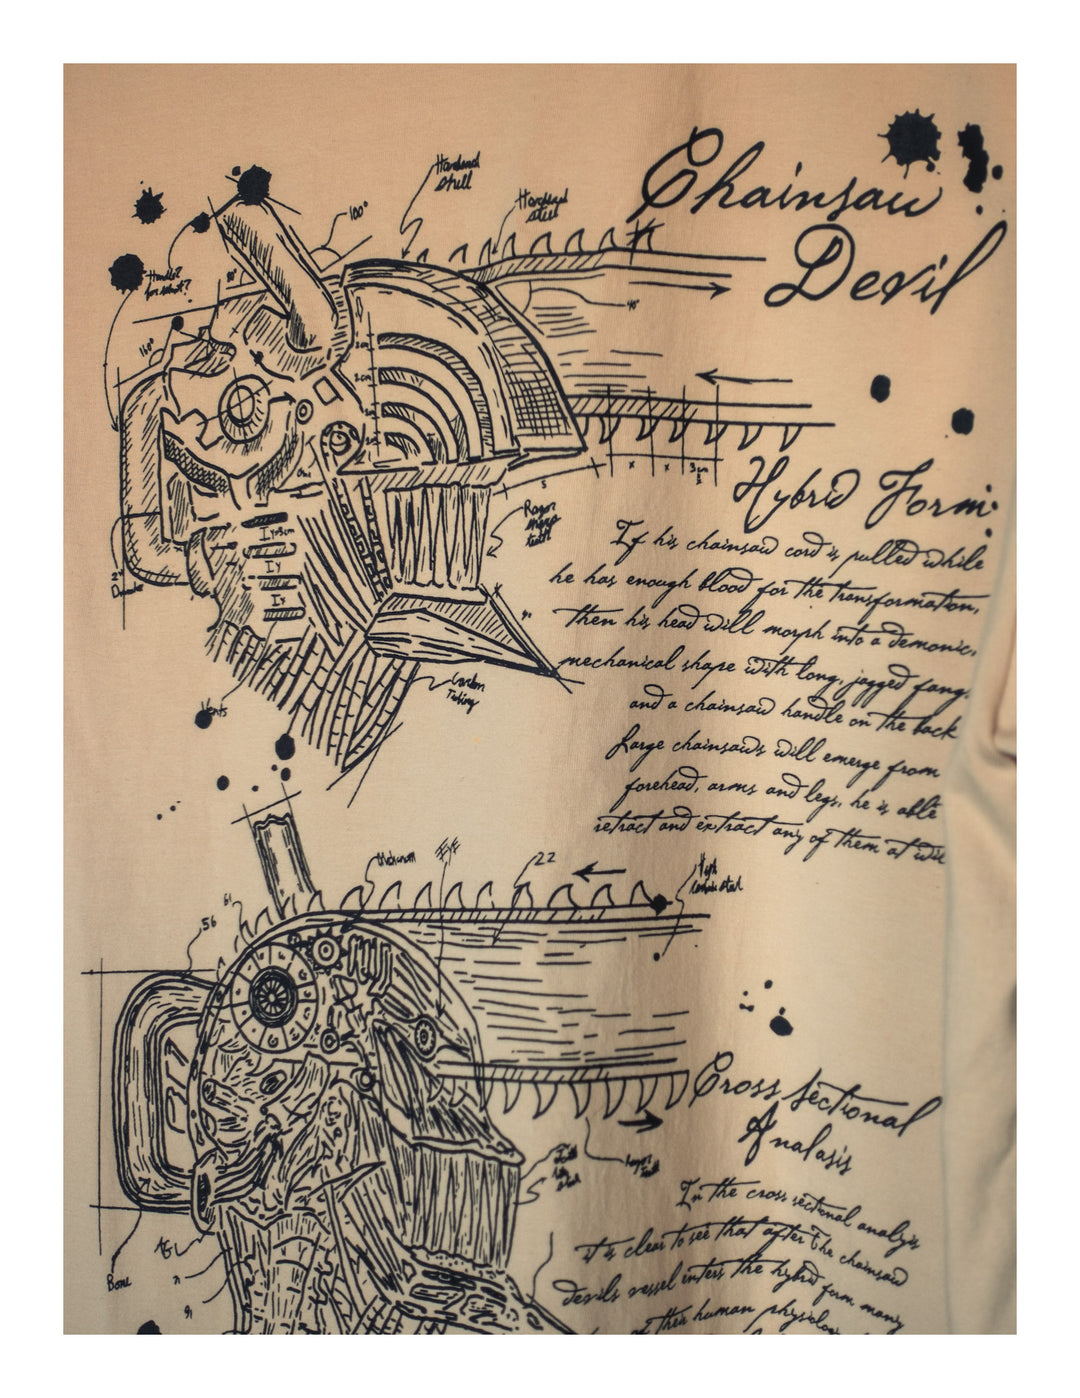 Chainsaw
Devil
Hardend
Stell
Hardend
steel
100°
Handle?
for what?
90°
160°
2cm
2cm
Razor
sharp
teeth
3cm
Hybrid Form
If his chainsaw cord is pulled while
he has enough blood for the transformation,
then his head will morph into a demonic,
mechanical shape with long, jagged fangs
and a chainsaw handle on the back
Large chainsaws will emerge from
forehead, arms and legs, he is able
retract and extract any of them at will
Iy
Iy
2"
Carbon
Tubing
Vents
Eye
22
56
61
Cross Sectional
Analasis
In the cross sectional analysis
it is clear to see that after the chainsaw
devils vessel enters the hybrid form many
of their human physiology
Razor
Bone